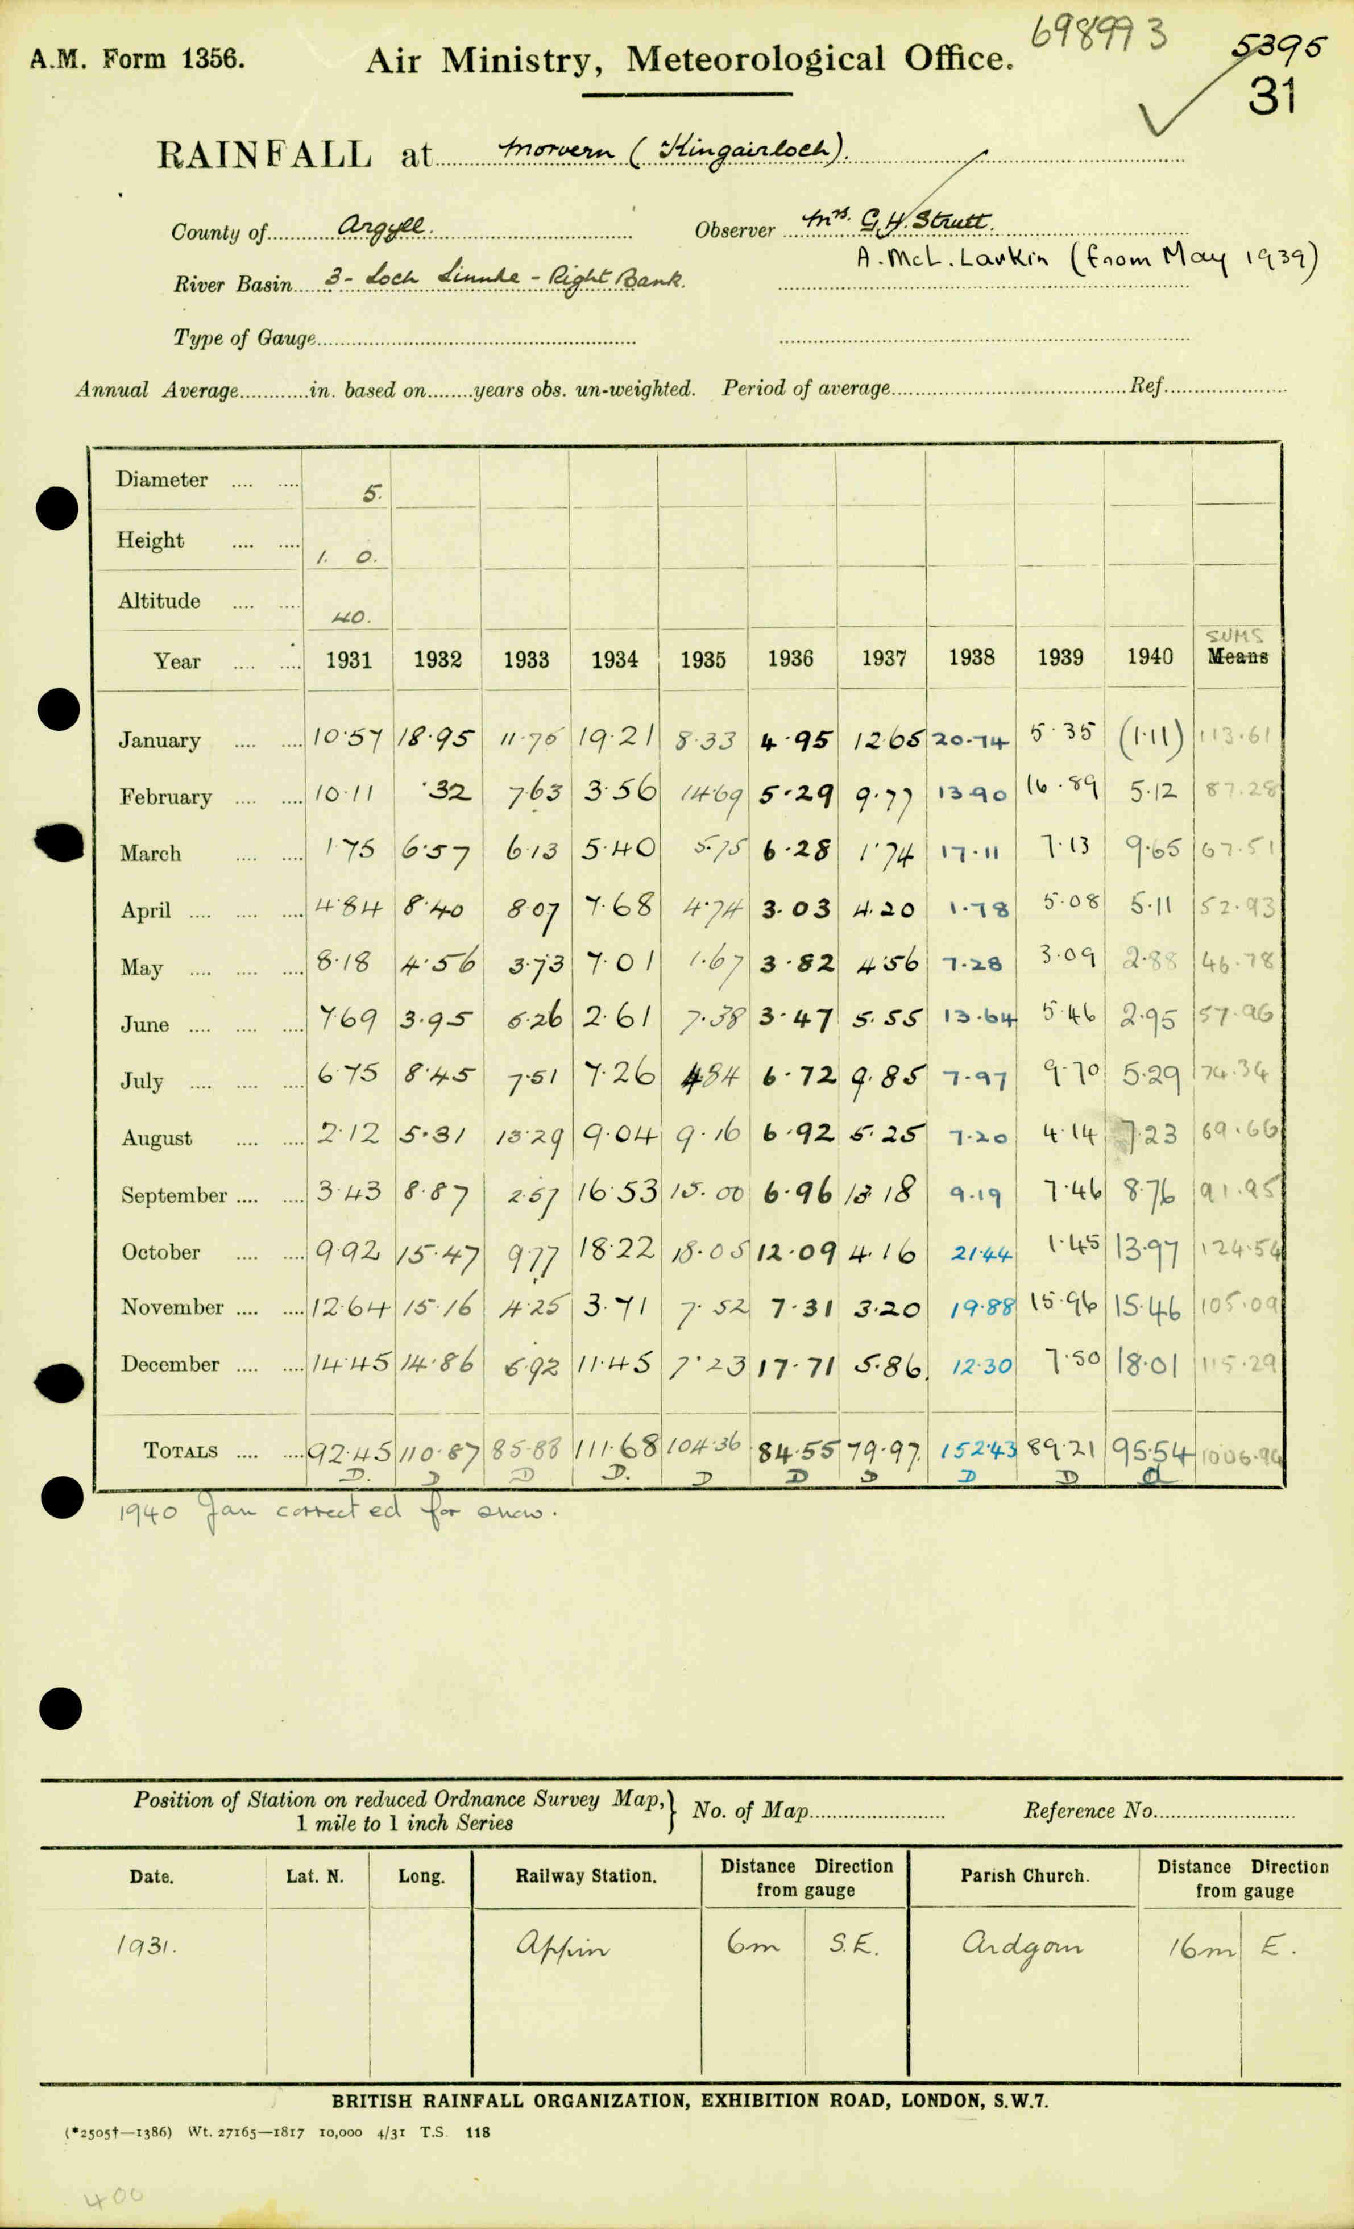 698993
5395
31
A.M. Form 1356.
Air Ministry, Meteorological Office.
RAINFALL at Morvern (Kingairloch).
County of Argyll.
Observer Mrs. G.H. Strutt.
A. McL. Larkin (from May 1939)
River Basin 3- Loch Linnhe - Right Bank.
Type of Gauge
Annual Average in. based on years obs. un-weighted. Period of average Ref.
Diameter 5.
Height 1. 0.
Altitude 40.
SUMS
Year 1931 1932 1933 1934 1935 1936 1937 1938 1939 1940 Means
January 10.57 18.95 11.75 19.21 8.33 4.95 12.65 20.74 5.35 (1.11) 113.61
February 10.11 .32 7.63 3.56 14.69 5.29 9.77 13.90 16.89 5.12 87.28
March 1.75 6.57 6.13 5.40 5.75 6.28 1.74 17.11 7.13 9.65 67.51
April 4.84 8.40 8.07 7.68 4.74 3.03 4.20 1.78 5.08 5.11 52.93
May 8.18 4.56 3.73 7.01 1.67 3.82 4.56 7.28 3.09 2.88 46.78
June 7.69 3.95 5.26 2.61 7.38 3.47 5.55 13.64 5.46 2.95 57.96
July 6.75 8.45 7.51 7.26 4.84 6.72 9.85 7.97 9.70 5.29 74.34
August 2.12 5.31 13.29 9.04 9.16 6.92 5.25 7.20 4.14 7.23 69.66
September 3.43 8.87 2.57 16.53 15.00 6.96 13.18 9.19 7.46 8.76 91.95
October 9.92 15.47 9.77 18.22 18.05 12.09 4.16 21.44 1.45 13.97 124.54
November 12.64 15.16 4.25 3.71 7.52 7.31 3.20 19.88 15.96 15.46 105.09
December 14.45 14.86 5.92 11.45 7.23 17.71 5.86 12.30 7.50 18.01 115.29
TOTALS 92.45 110.87 85.88 111.68 104.36 84.55 79.97 152.43 89.21 95.54 1006.94
D. D D D. D D D D D d
1940 Jan corrected for snow.
Position of Station on reduced Ordnance Survey Map, 1 mile to 1 inch Series
No. of Map
Reference No.
Date. Lat. N. Long. Railway Station. Distance Direction from gauge Parish Church. Distance Direction from gauge
1931. Appin 6m S.E. Ardgour 16m E.
BRITISH RAINFALL ORGANIZATION, EXHIBITION ROAD, LONDON, S.W.7.
(*2505†—1386) Wt. 27165—1817 10,000 4/31 T.S. 118
400